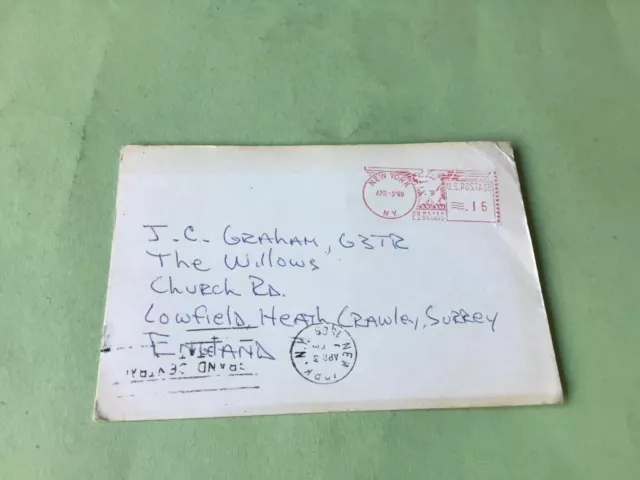 NEW YORK
APR
N.Y.
U.S. POSTAGE
.15
PB METER
J.C. GRAHAM, G3TR
The Willows
Church RD.
Lowfield, Heath, Crawley, Surrey
England
GRAND CENTRAL
NEW YORK, N.Y.
APR 3